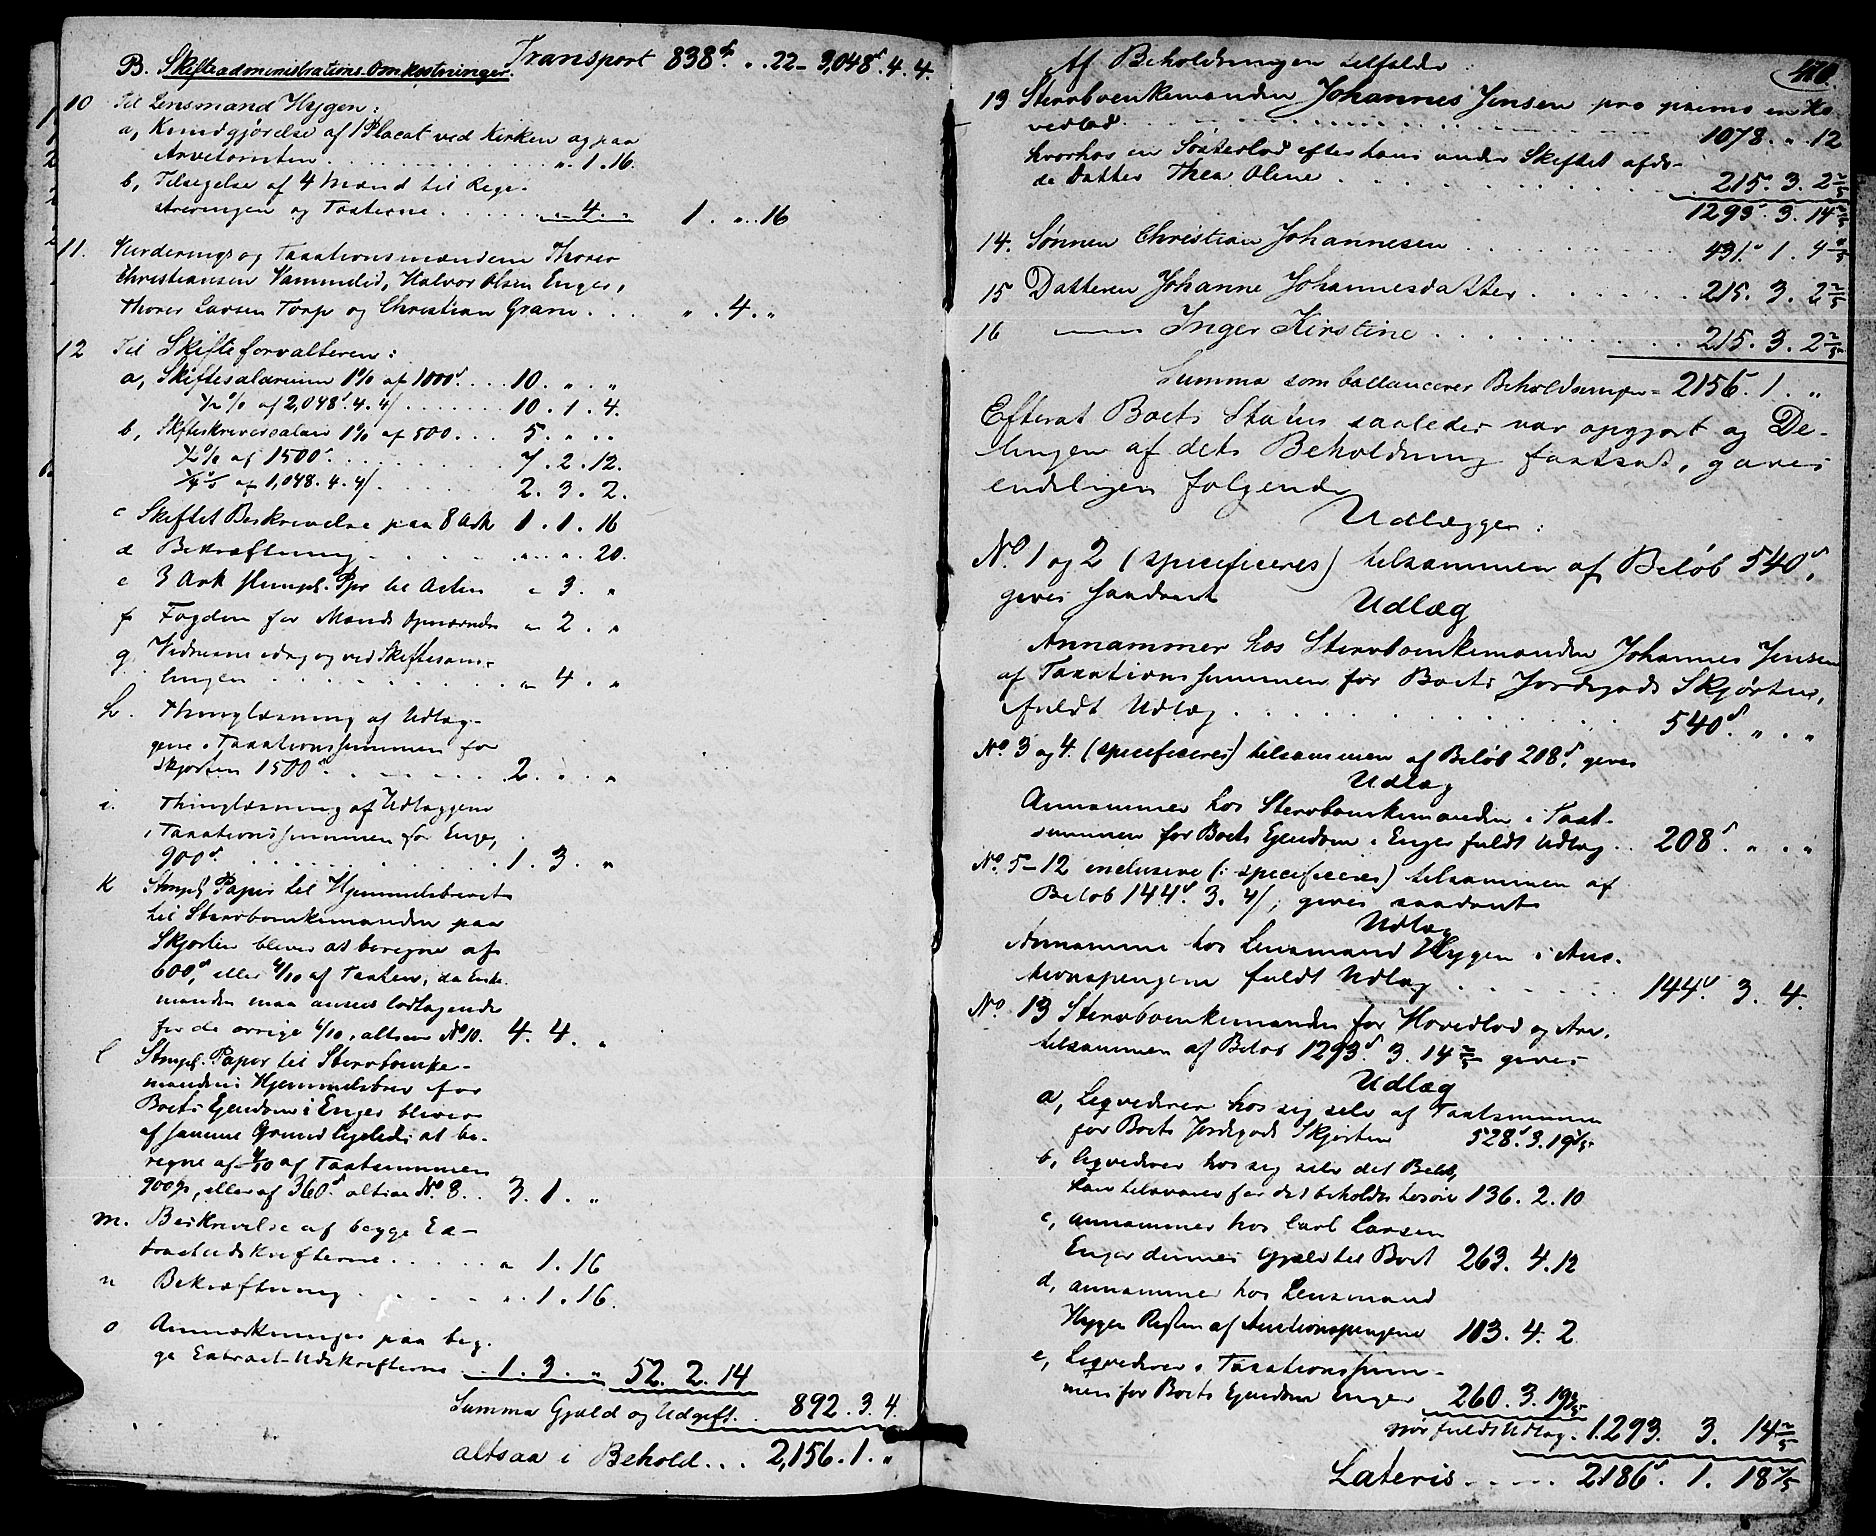 Transport 838 . „ . 22 – 3,048 . 4 . 4.
B. Skifteadministrations Omkostninger.
10 Til Lensmand Hygen:
a, Kundgjørelse af 1 Placat ved Kirken og paa
Arvetomten . . . „ . 1 . 16.
b, Tilsigelse af 4 Mænd til Regi-
streringen og Taxterne . . . „ 4 . „ 1 . „ . 16
11. Vurderings og Taxationsmændene Thorer
Christiansen Vammelid, Halvor Olsen Enger,
Thorer Larsen Torp og Christian Gram . . . „ . 4 . „
12 Til Skifteforvalteren:
a, Skiftesalarium 1% af 1000 . . . 10 . „ . „
½ % af 2,048 . 4 . 4 . . . 10 . 1 . 4.
b, Skifteskriversalair 1% af 500 . . . 5 . „ . „
½ % af 1500 . . . 7 . 2 . 12.
¼ % af 1,048 . 4 . 4 . . . 2 . 3 . 2.
c Skiftets Beskrivelse paa 8 Ark 1 . 1 . 16
d Bekræftning . . . „ . „ . 20.
e 3 Ark stempl. Ppr til Acten „ 3 . „
f Fogden for Mænds Opnævnelse „ 2 . „
g. Vidnerne idag og ved Skiftesam-
lingen . . . „ 4 . „
h. Thinglæsning af Udlæg-
gene i Taxationssummen for
Skjorten 1500 . . . 2 . „ . „
i. Thinglæsning af Udlæggene
i Taxationssummen for Enger,
900 . . . 1 . 3 . „
k Stempl. Papir til Hjemmelsbrevet
til Stervboenkemanden paa
Skjorten bliver at beregne af
600, eller 4/10 af Taxten, da Enke-
manden maa ansees lodtagende
for de øvrige 6/10, altsaa No 10. 4 . 4 . „
l Stmpl. Papir til Stervboenke-
mandens Hjemmelsbrev for
Boets Ejendom i Enger bliver
af samme Grund ligeledes at be-
regne af 4/10 af Taxtsummen
900, eller af 360 altsaa No 8 . . 3 . 1 . „
m. Beskrivelse af begge Ex-
tractudskrifterne . . . „ 1 . 16
n Bekræftning . . . „ . 1 . 16.
o Anmærkninger paa beg-
ge Extract-Udskrifterne . . 1 . 3 . „ 52 . 2 . 14
Summa Gjæld og Udgift . . 892 . 3 . 4.
altsaa i Behold . . . 2,156 . 1 . „
470.
Af Beholdningen tilfalder:
13 Stervboenkemanden Johannes Jensen pro primo en Ho-
vedlod . . . 1078 . „ . 12
hvorhos en Søsterlod efter hans under Skiftet afdø-
de Datter Thea Oline . . . 215 . 3 . 2 2/5
1293 . 3 . 14 2/5
14. Sønnen Christian Johannesen . . . 431 . 1 . 4 4/5
15 Datteren Johanne Johannesdatter . . . 215 . 3 . 2 2/5
16 —— Inger Kirstine . . . 215 . 3 . 2 2/5
Summa som ballancerer Beholdningen = 2156 . 1 . „
Efterat Boets Status saaledes var opgjort og De-
lingen af dets Beholdning fastsat, gaves
endeligen følgende
Udlægger:
No. 1 og 2 (specificeres) tilsammen af Beløb 540,
gives saadant
Udlæg
Annammer hos Stervboenkemanden Johannes Jensen
af Taxationssummen for Boets Jordegods Skjorten,
fuldt Udlæg . . . 540 . „ . „
No. 3 og 4. (specificeres) tilsammen af Beløb 208, gives
Udlæg
Annammer hos Stervboenkemanden i Taxt-
summen for Boets Ejendom i Enger fuldt Udlæg . . 208 „ . „
No. 5 – 12 inclusive (: specificeres) tilsammen af
Beløb 144 . 3 . 4, gives saadant
Udlæg
Annamme hos Lensmand Hygen i Auc-
tionspengene fuldt Udlæg . . . 144 . 3 . 4.
No. 13 Stervboenkemanden for Hovedlod og Arv,
tilsammen af Beløb 1293 . 3 . 14 2/5 gives
Udlæg
a, Liqviderer hos sig selv af Taxtsummen
for Boets Jordegods Skjorten 528 . 3 . 19 4/5
b, liqviderer hos sig selv det Beløb,
han tilsvarer for det beholdte Løsøre 136 . 2 . 10
c, annammer hos Carl Larsen
Enger dennes Gjæld til Boet 263 . 4 . 12
d, annammer hos Lensmand
Hygen Resten af Auctionspengene 103 . 4 . 2
e, Liqviderer i Taxationssum-
men for Boets Ejendom Enger 260 . 3 . 19 3/5
er fuldt Udlæg . 1293 . 3 . 14 2/5
Lateris . . . 2186 . 1 . 18 2/5